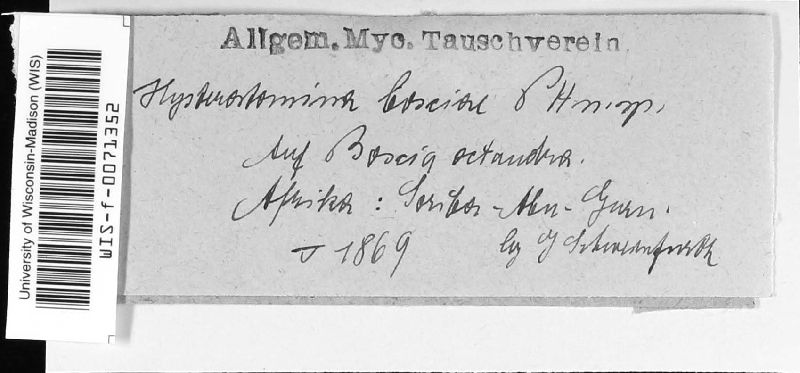 Allgem. Myc. Tauschverein
Hysterostomina Bosciae P Hn.sp.
Auf Boscia octandra.
Afrika: Seriba-Abu-Guru.
J 1869 lg G Schweinfurth
University of Wisconsin-Madison (WIS)
WIS-f-0071352